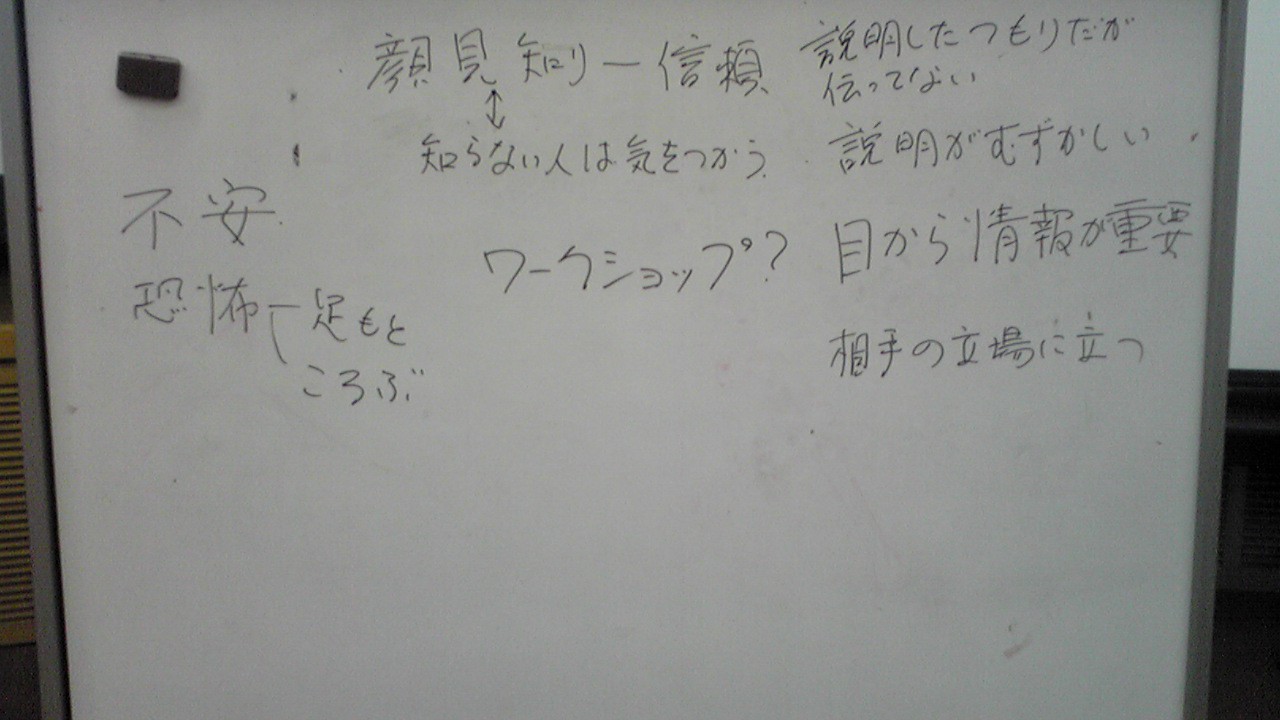 顔見知り ー 信頼
↕
知らない人は気をつかう
不安
恐怖 ー 足もと
ころぶ
ワークショップ?
説明したつもりだが
伝ってない
説明がむずかしい
目から情報が重要
相手の立場に立つ